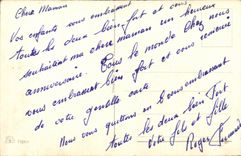 Chère Maman
Vos enfants vous embrassent
toutes les deux bien fort et vous
souhaitent ma chère maman un heureux
anniversaire. Tous le monde chez nous
vous embrassent bien fort et vous remercie
de votre gentille carte
Nous vous quittons en vous embrassant
toutes les deux bien fort
Votre fils et fille
Roger